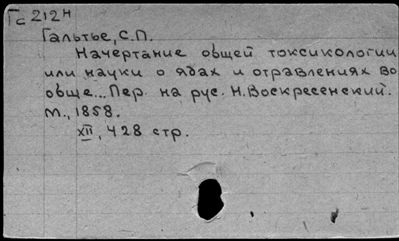 Гс 212н
Гальтье, С.П.
Начертание общей токсикологии
или науки о ядах и отравлениях во
обще... Пер. на рус. Н. Воскресенский.
М., 1858.
XII, 428 стр.